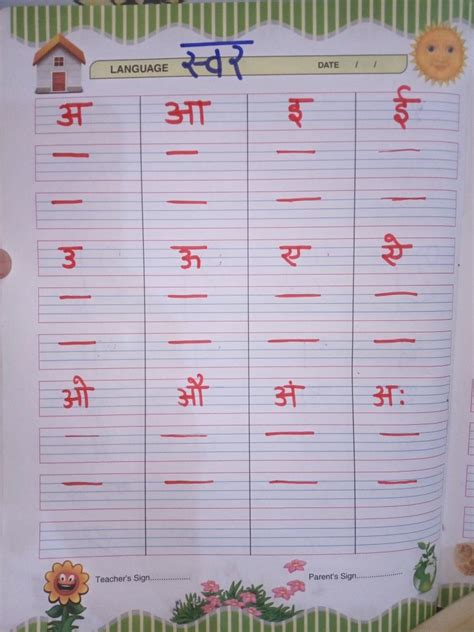 LANGUAGE स्वर DATE / /
अ आ इ ई
उ ऊ ए ऐ
ओ औ अं अः
Teacher's Sign................ Parent's Sign................